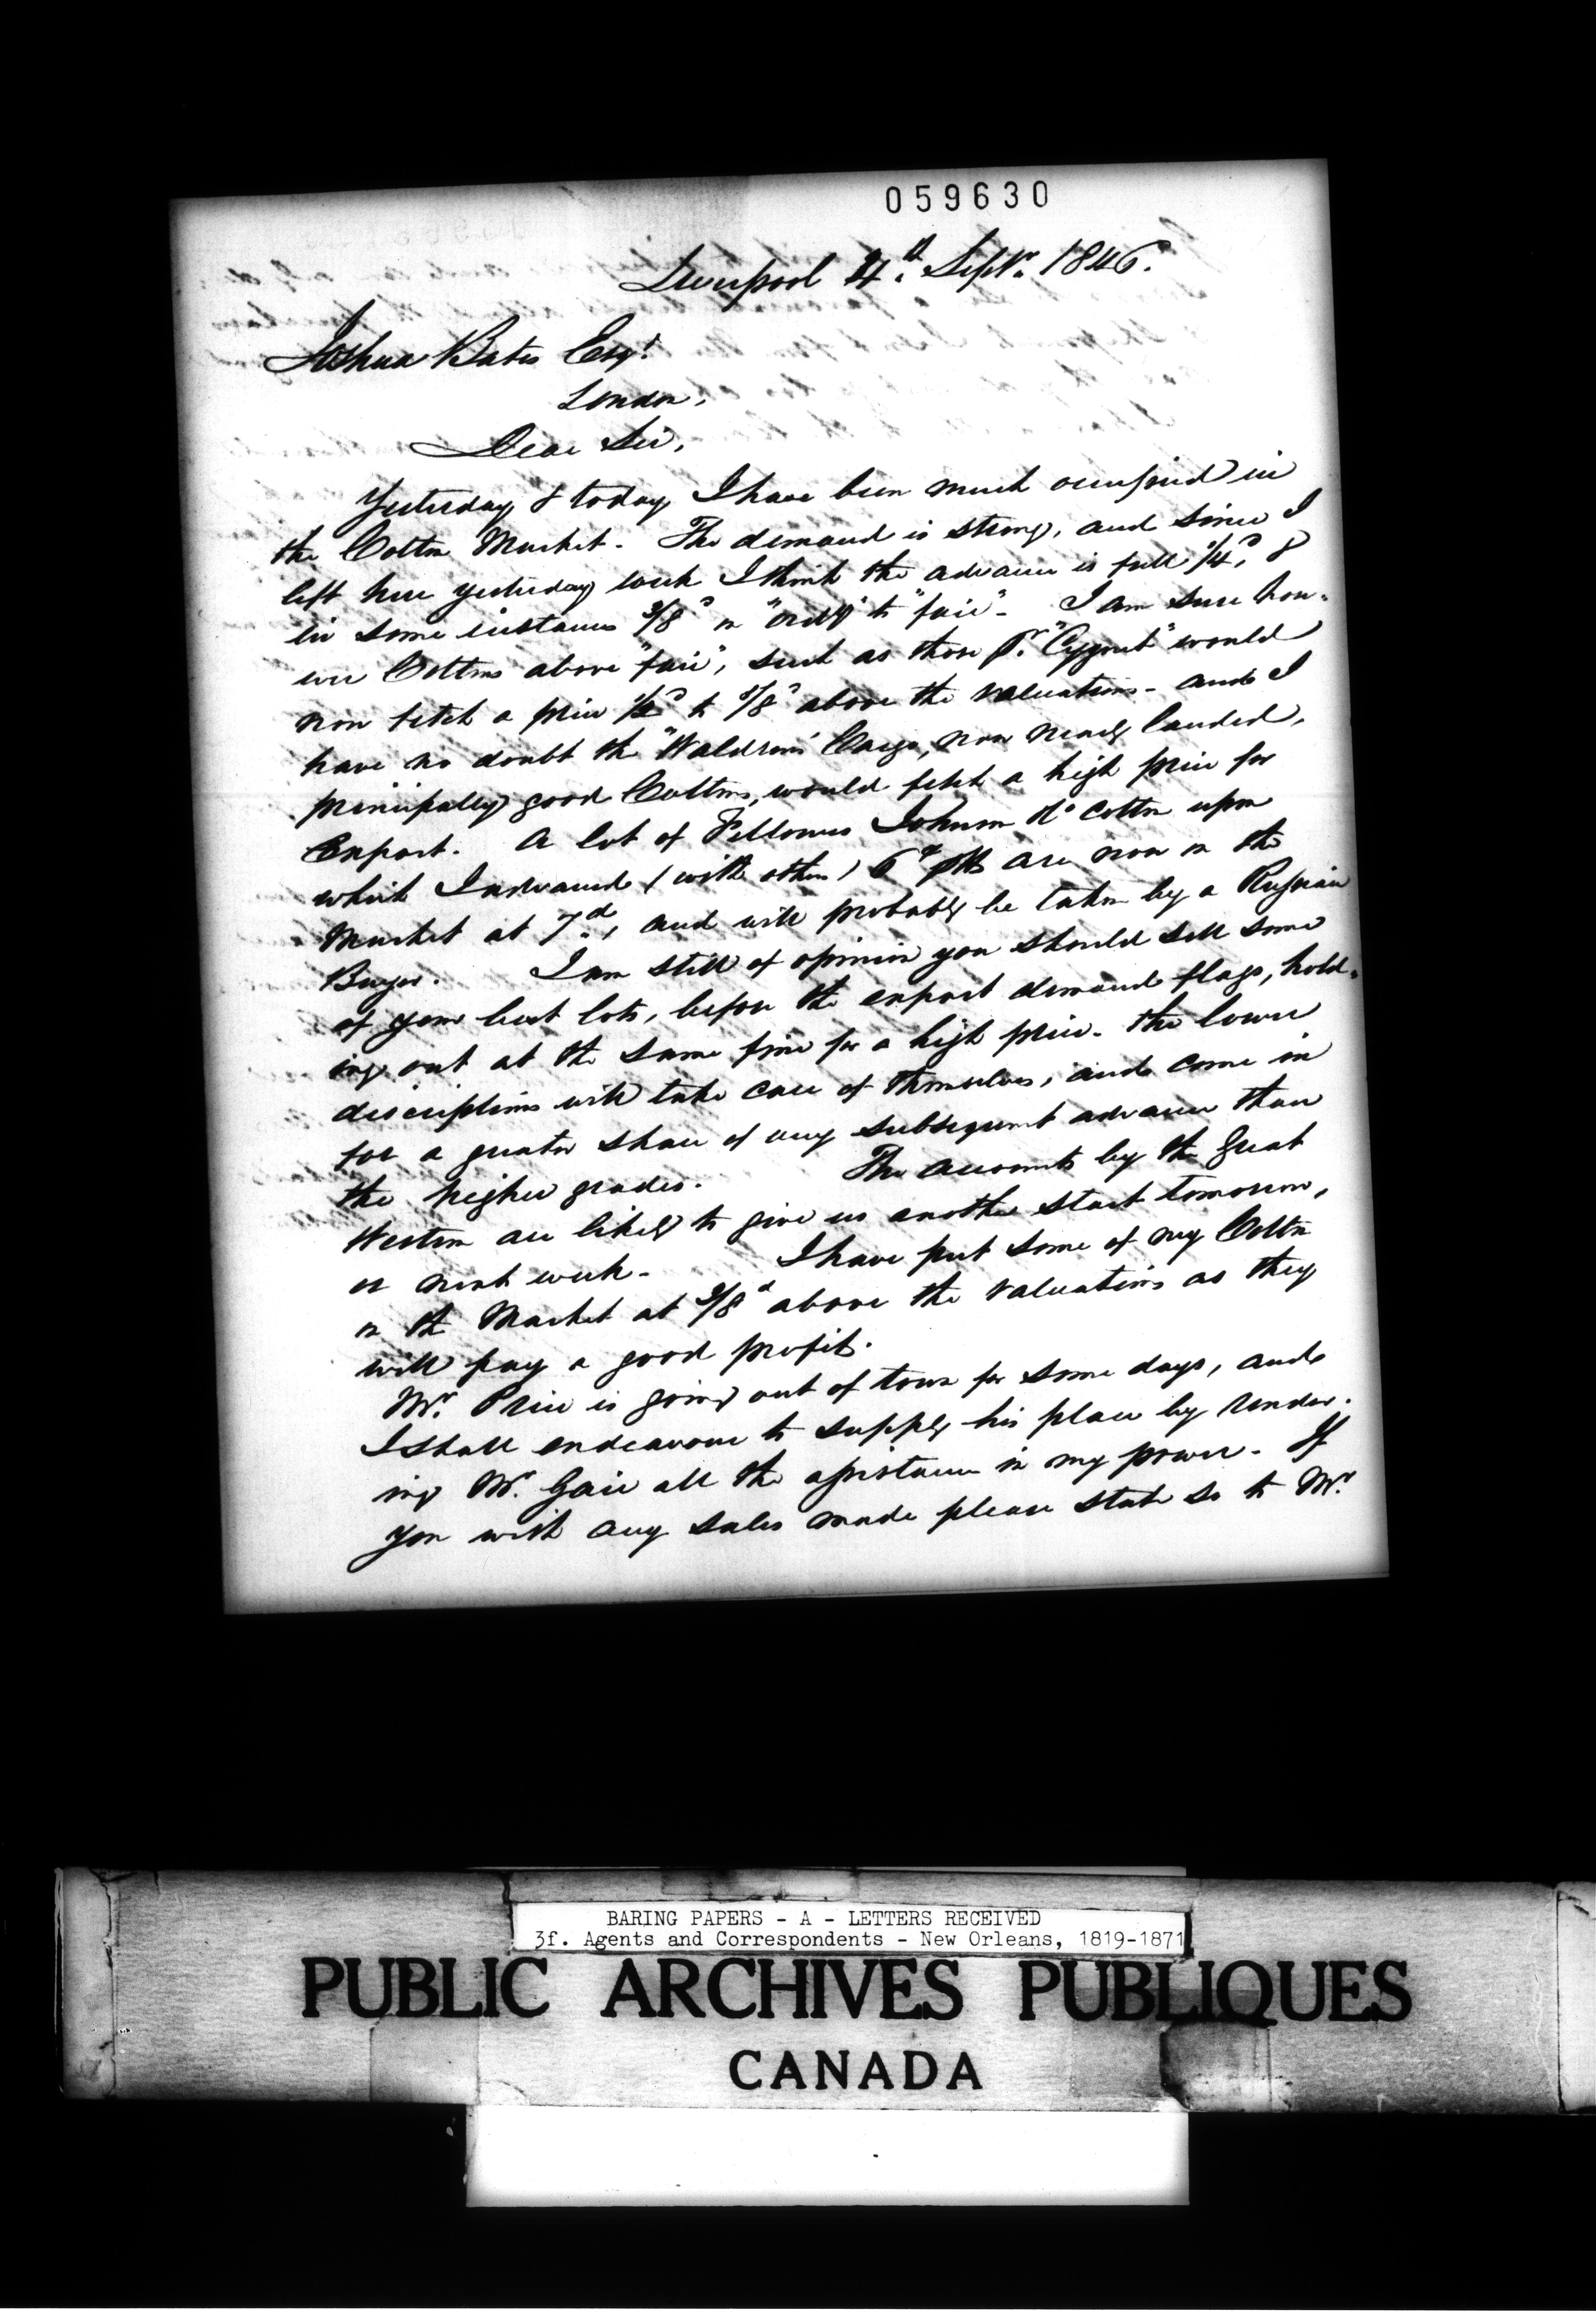 059630
Liverpool 4th. Septr. 1846.
Joshua Bates Esqr.
London,
Dear Sir,
Yesterday & today I have been much occupied in
the Cotton Market. The demand is strong, and since I
left here yesterday week I think the advance is full 1/4d, &
in some instances 3/8d on "ordy" to "fair". I am sure how-
ever Cottons above "fair", such as those pr. "Cygnet" would
now fetch a price 1/2d to 5/8d above the valuations - and I
have no doubt the "Waldron's" Cargo, now nearly landed,
principally good Cottons, would fetch a high price for
Export. A lot of Fellowes Johnson & Co Cotton upon
which I advanced (with others) 6d are now on the
Market at 7d, and will probably be taken by a Russian
Buyer. I am still of opinion you should sell some
of your best lots, before the export demand flags, hold-
ing out at the same time for a high price. The lower
descriptions will take care of themselves, and come in
for a greater share of any subsequent advance than
the higher grades. The accounts by the Great
Western are likely to give us another start tomorrow,
or next week. I have put some of my Cotton
on the Market at 3/8d above the valuations as they
will pay a good profit.
Mr. Price is going out of town for some days, and
I shall endeavour to supply his place by render-
ing Mr. Gair all the assistance in my power. If
you wish any sales made please state so to Mr.
BARING PAPERS - A - LETTERS RECEIVED
3f. Agents and Correspondents - New Orleans, 1819-1871
PUBLIC ARCHIVES PUBLIQUES
CANADA